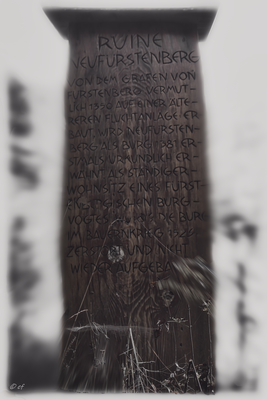 RUINE
NEUFÜRSTENBERG
VON DEM GRAFEN VON
FÜRSTENBERG VERMUT-
LICH AUF EINER ÄLTE-
REREN FLUCHTANLAGE ER
BAUT. WIRD NEUFÜRSTEN-
BERG ALS BURG 1381 ER-
STMALS URKUNDLICH ER-
WÄHNT. ALS STÄNDIGER
WOHNSITZ EINES FÜRST-
BURG-
VOGTES DIE BURG
IM BAUERNKRIEG
UND NICHT
WIEDER AUFGEBA
© ef